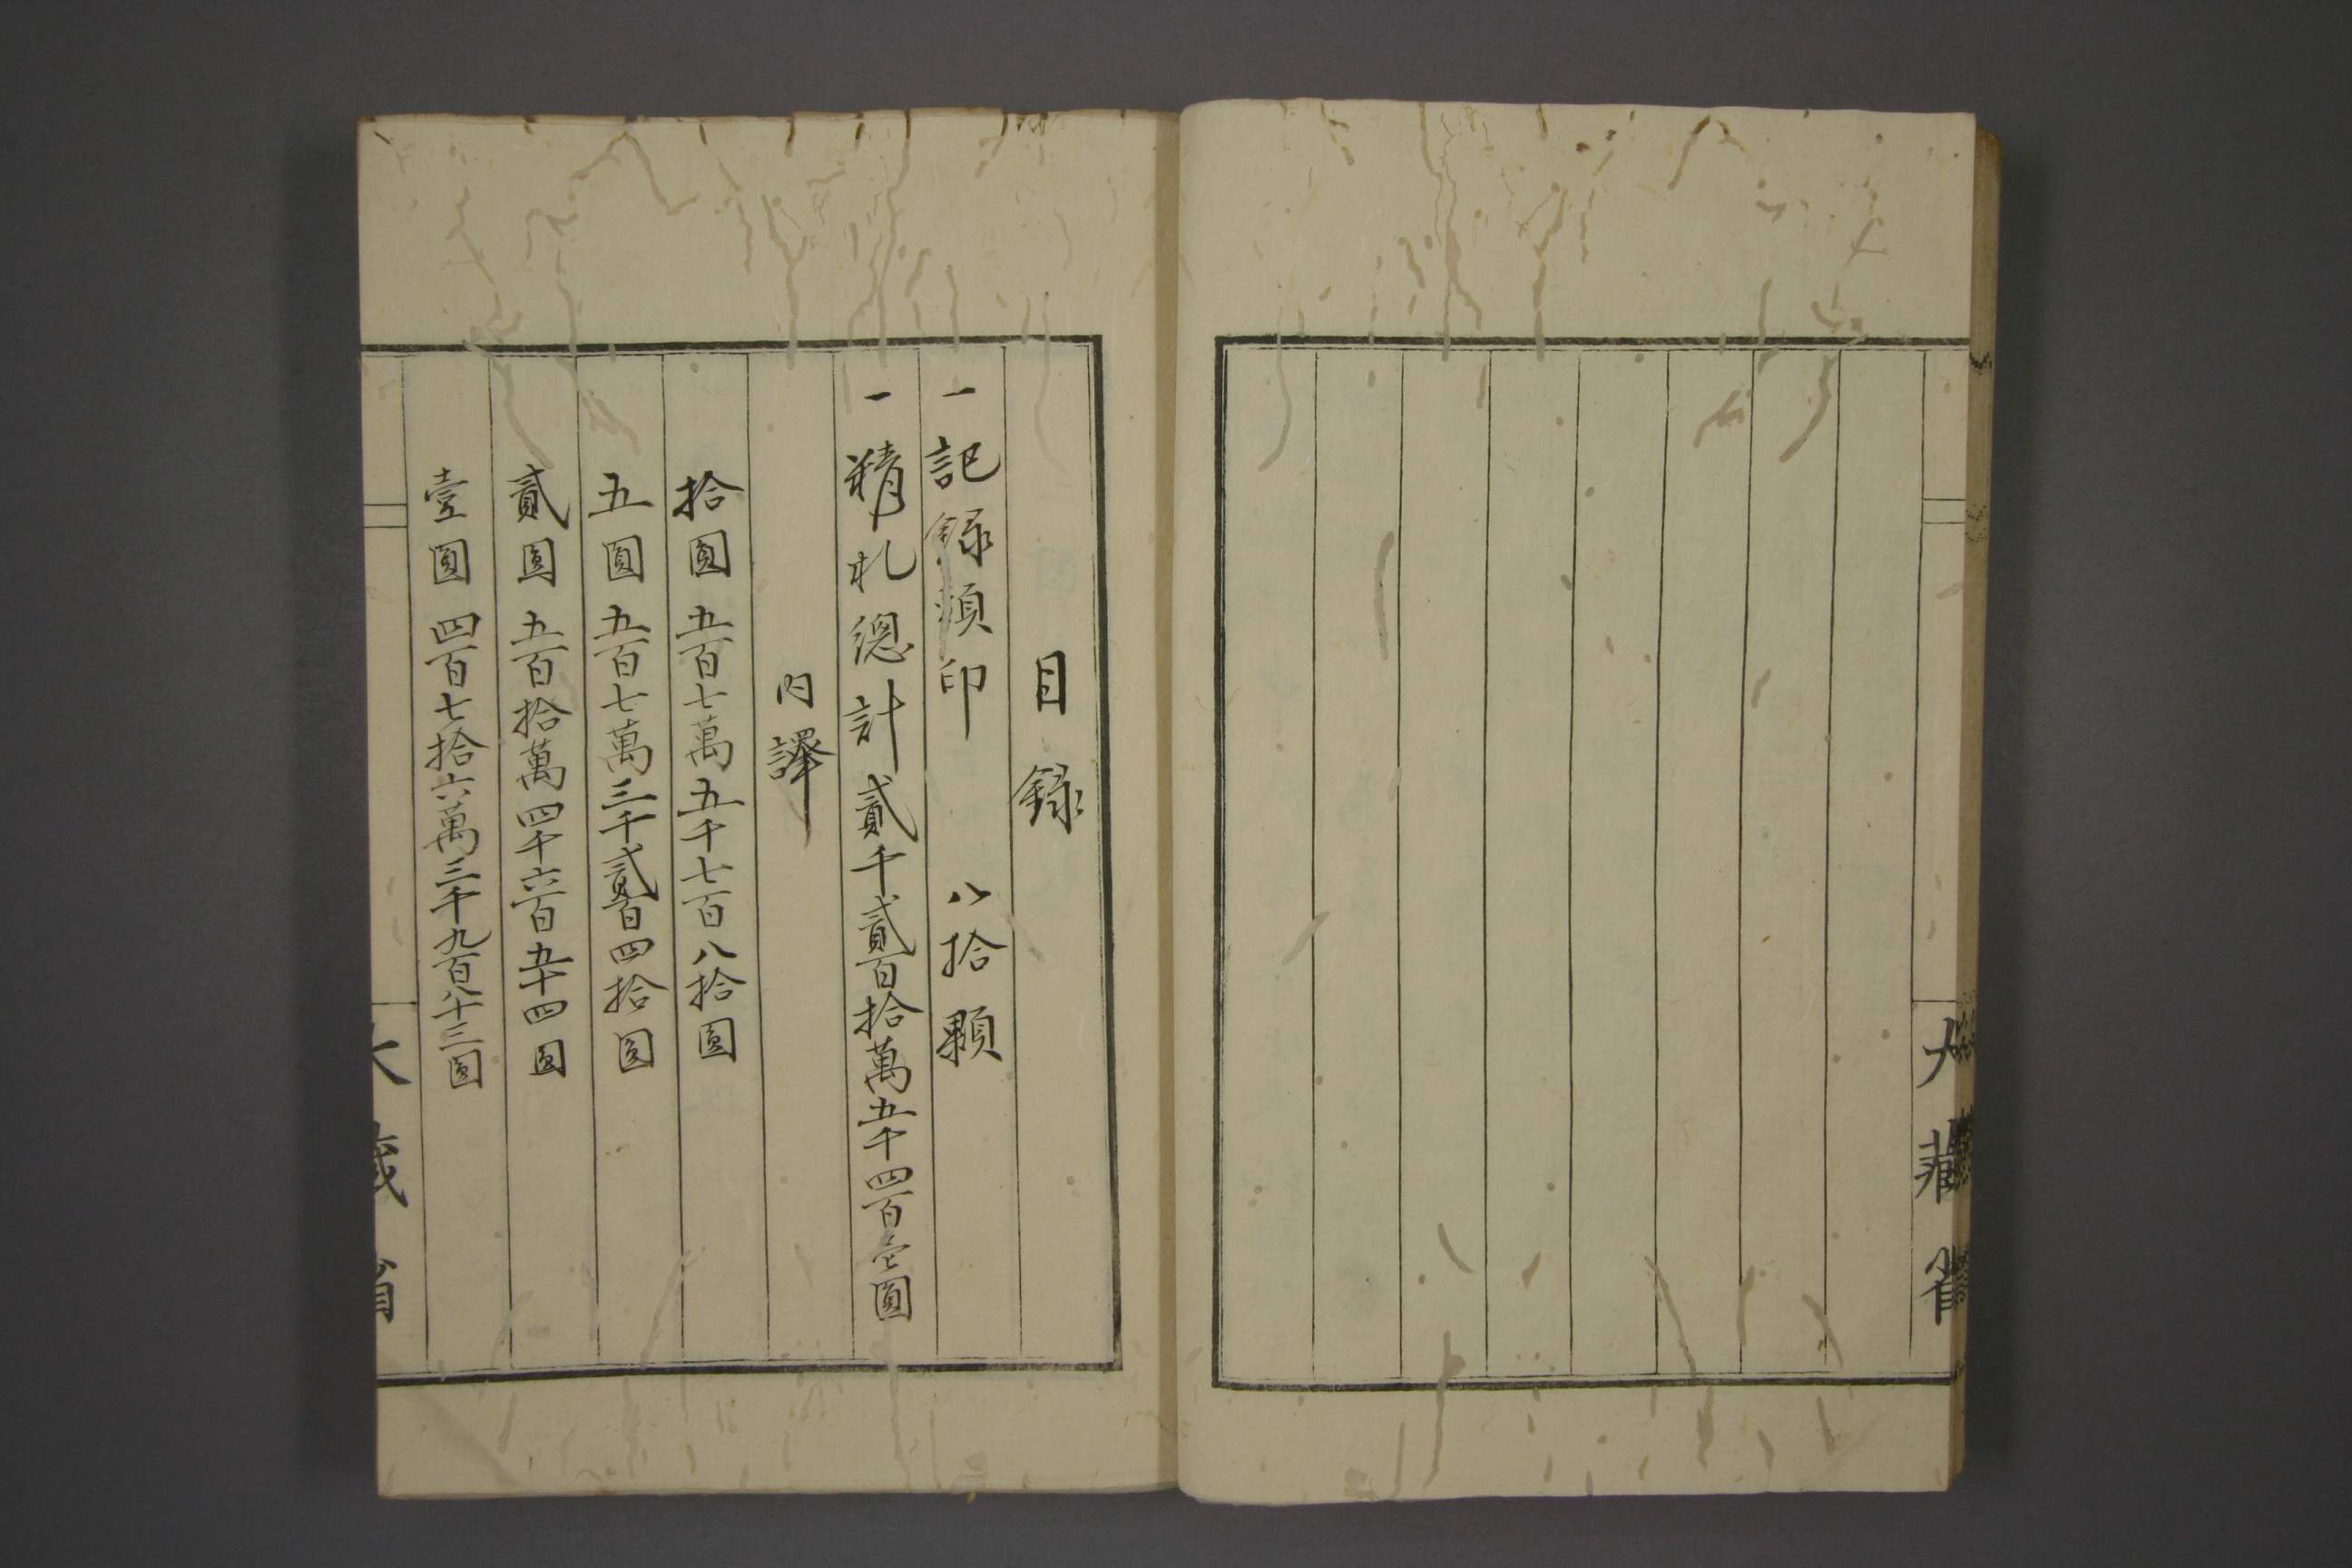 大藏省
目録
一記録頬印　八拾顆
一精札總計貳千貳百拾萬五千四百壱圓
内譯
拾圓　五百七萬五千七百八拾圓
五圓　五百七萬三千貳百四拾圓
貳圓　五百拾萬四千六百五十四圓
壹圓　四百七拾六萬三千九百八十三圓
大藏省